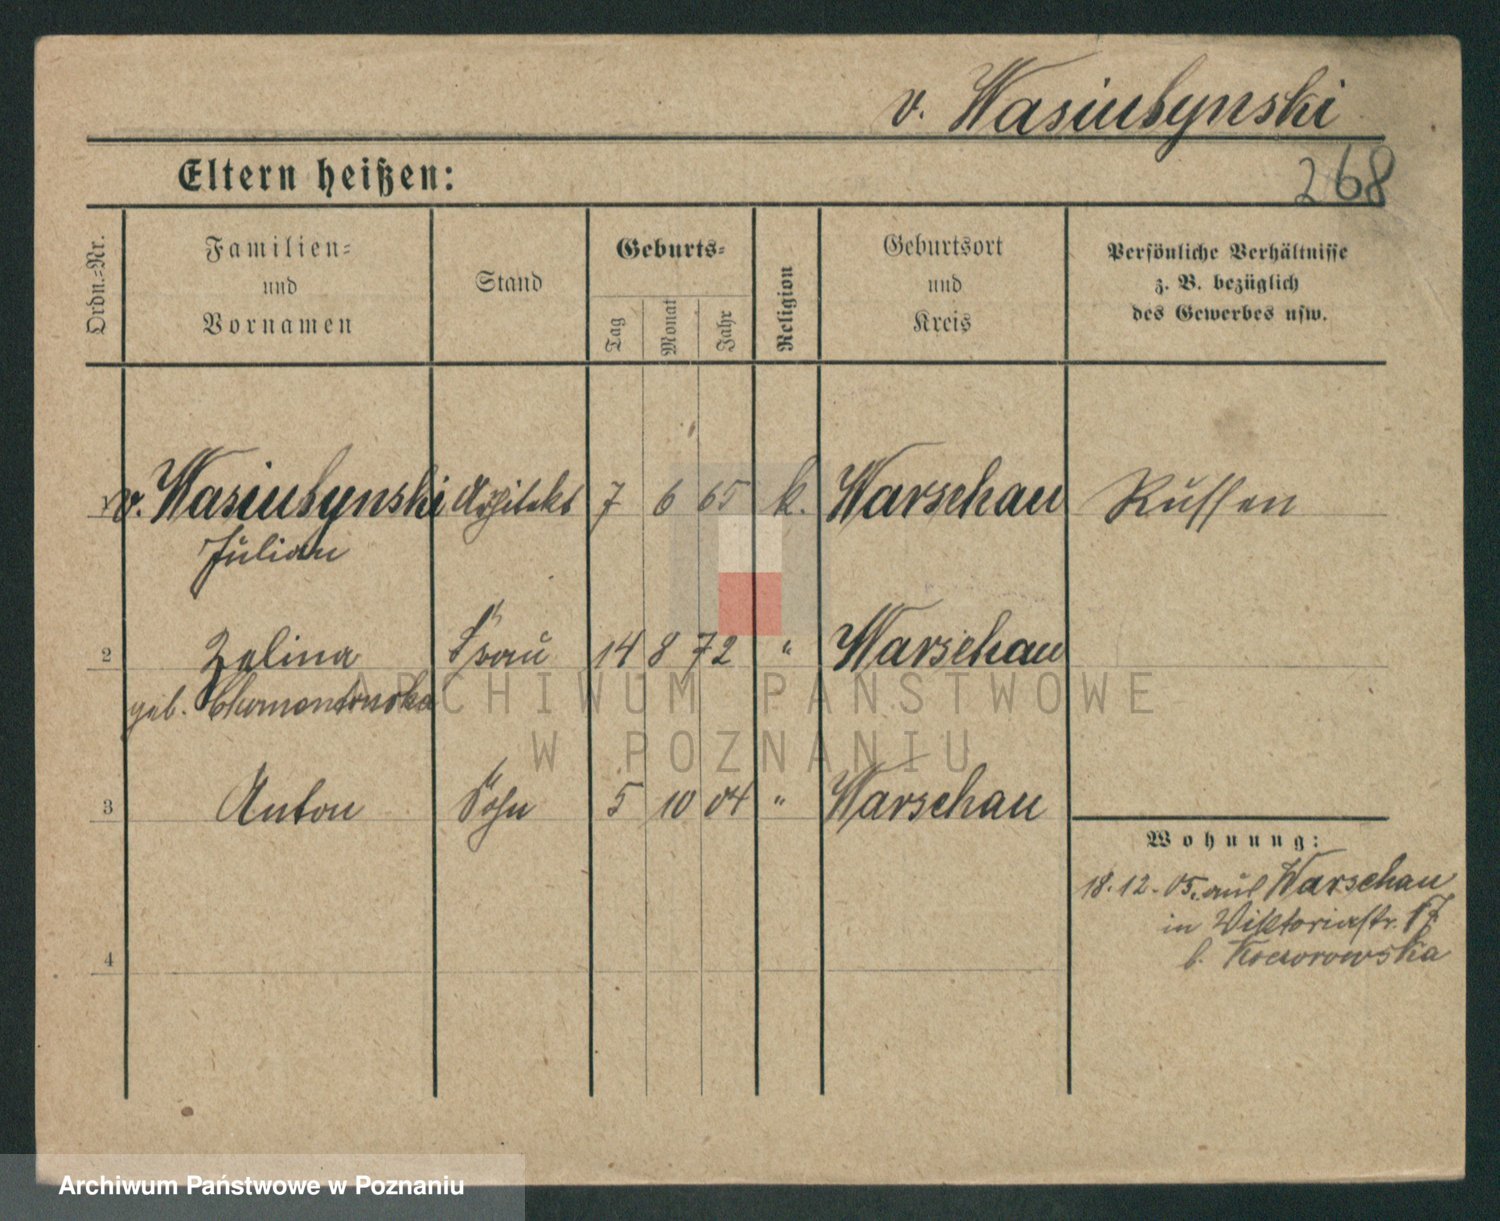 v. Wasiutynski
268
Eltern heißen:
Ordn.=Nr.
Familien=
und
Vornamen
Stand
Geburts=
Tag
Monat
Jahr
Religion
Geburtsort
und
Kreis
Persönliche Verhältnisse
z. B. bezüglich
des Gewerbes usw.
v. Wasiutynski Architekt 7 6 65 k. Warschau Russen
Julian
2 Zelina Frau 14 8 72 " Warschau
geb.
3 Anton Sohn 5 10 04 " Warschau
Wohnung:
18.12.05. aus Warschau
in Viktoriastr. 17
b. Koczorowska
4
ARCHIWUM PAŃSTWOWE
W POZNANIU
Archiwum Państwowe w Poznaniu